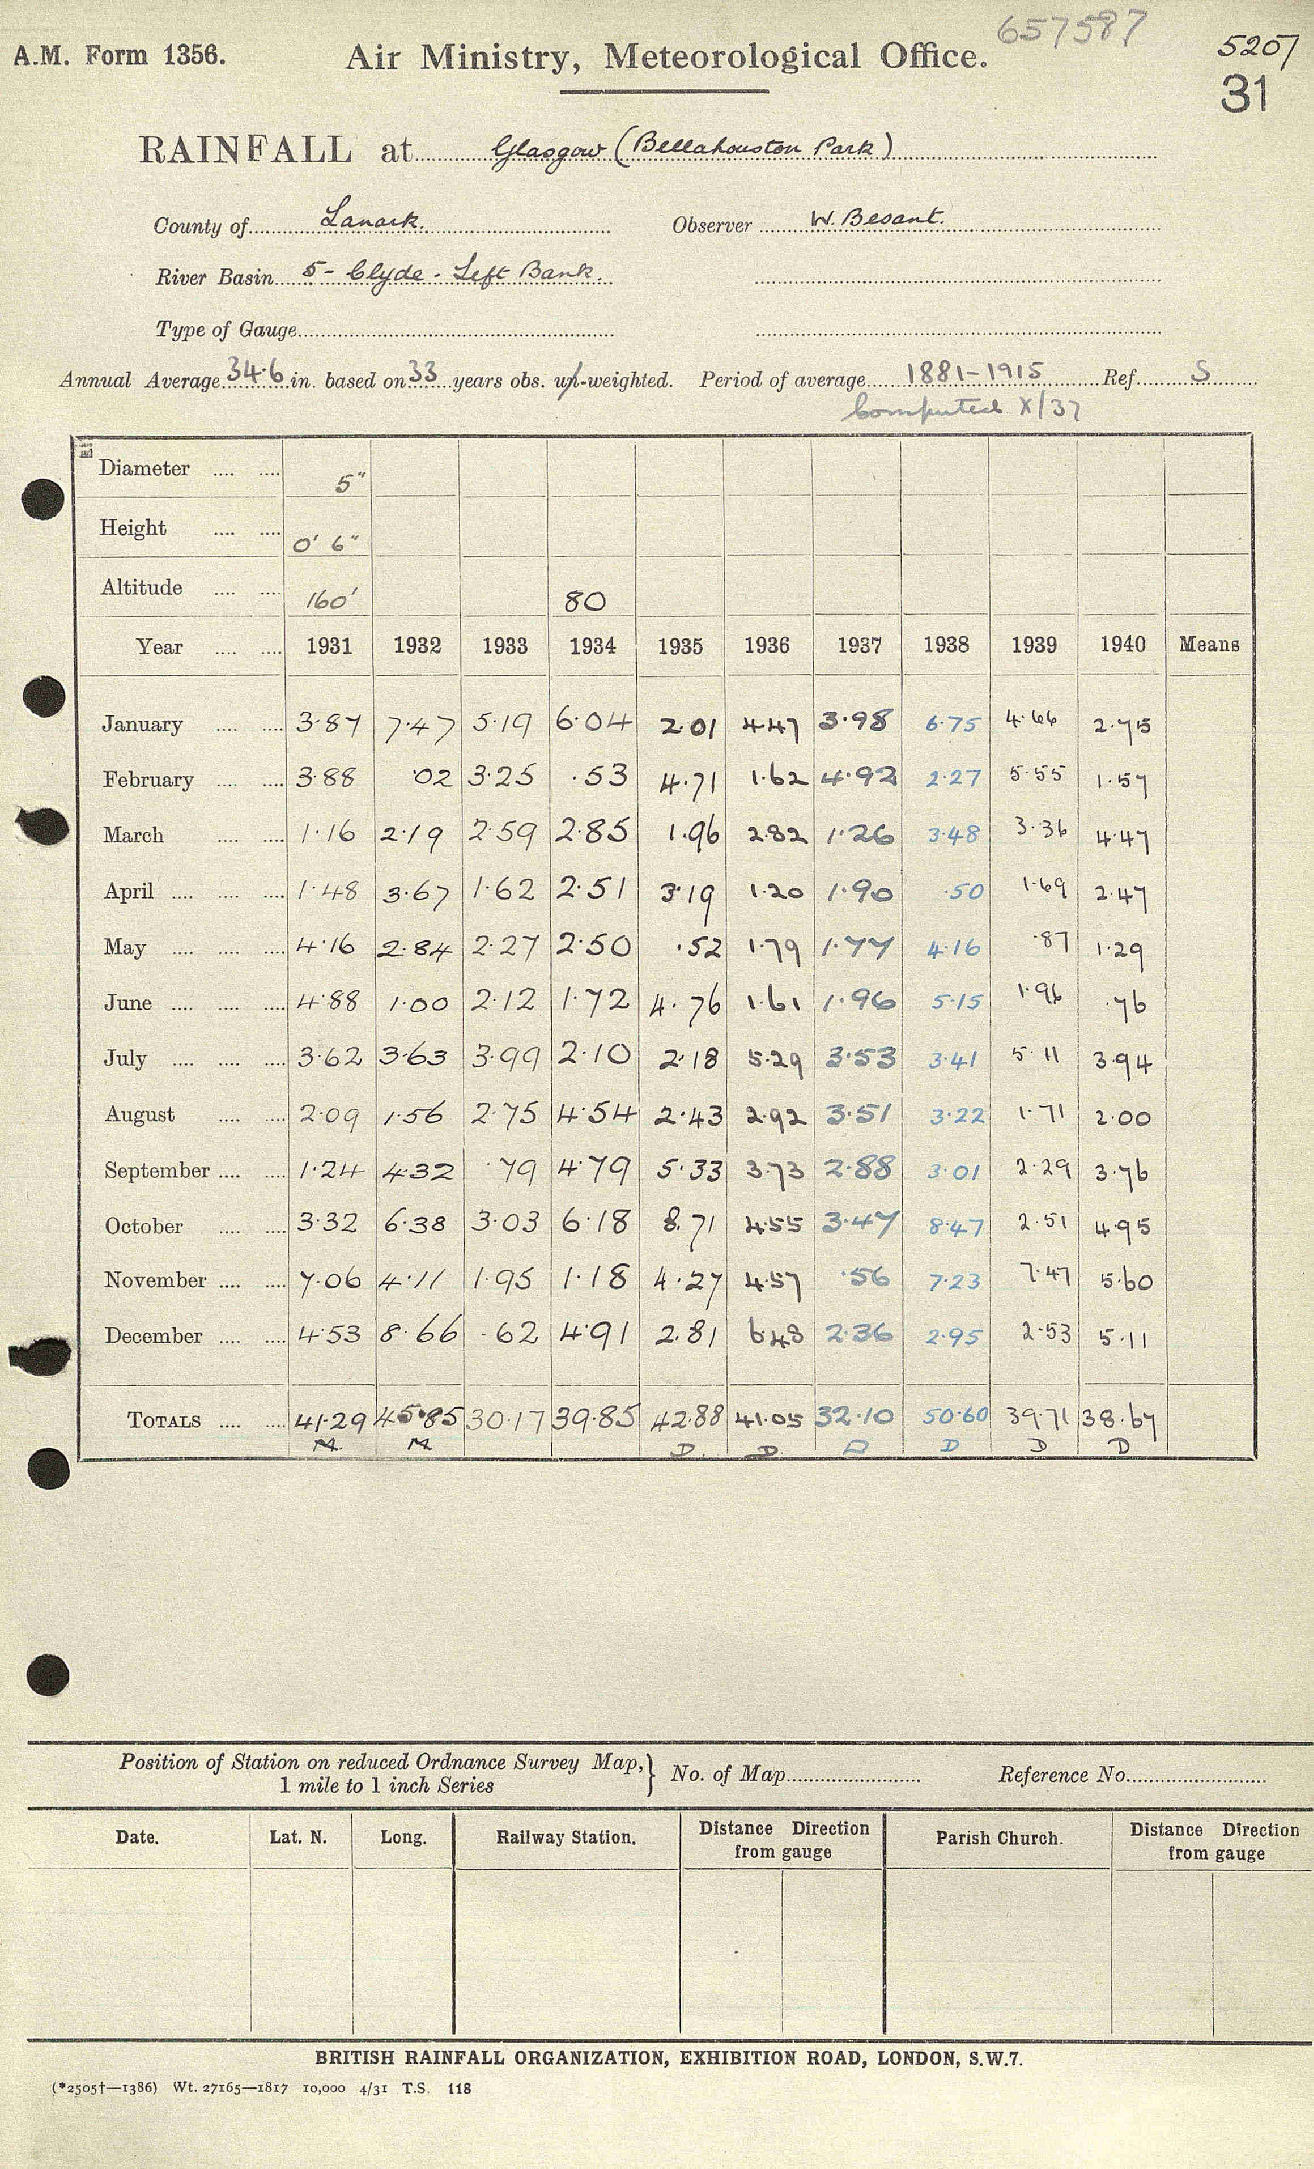 657587
A.M. Form 1356. Air Ministry, Meteorological Office. 5207
31
RAINFALL at Glasgow (Bellahouston Park)
County of Lanark. Observer W. Besant.
River Basin 5 - Clyde - Left Bank.
Type of Gauge
Annual Average 34.6 in. based on 33 years obs. un-weighted. Period of average 1881-1915 Ref. S
Computed X/37
Diameter 5"
Height 0' 6"
Altitude 160' 80
Year 1931 1932 1933 1934 1935 1936 1937 1938 1939 1940 Means
January 3.87 7.47 5.19 6.04 2.01 4.47 3.98 6.75 4.66 2.75
February 3.88 .02 3.25 .53 4.71 1.62 4.92 2.27 5.55 1.57
March 1.16 2.19 2.59 2.85 1.96 2.82 1.26 3.48 3.36 4.47
April 1.48 3.67 1.62 2.51 3.19 1.20 1.90 .50 1.69 2.47
May 4.16 2.84 2.27 2.50 .52 1.79 1.77 4.16 .87 1.29
June 4.88 1.00 2.12 1.72 4.76 1.61 1.96 5.15 1.96 .76
July 3.62 3.63 3.99 2.10 2.18 5.29 3.53 3.41 5.11 3.94
August 2.09 1.56 2.75 4.54 2.43 2.92 3.51 3.22 1.71 2.00
September 1.24 4.32 .79 4.79 5.33 3.73 2.88 3.01 2.29 3.76
October 3.32 6.38 3.03 6.18 8.71 4.55 3.47 8.47 2.51 4.95
November 7.06 4.11 1.95 1.18 4.27 4.57 .56 7.23 7.47 5.60
December 4.53 8.66 .62 4.91 2.81 6.48 2.36 2.95 2.53 5.11
TOTALS 41.29 45.85 30.17 39.85 42.88 41.05 32.10 50.60 39.71 38.67
M. M. D. D. D D D D
Position of Station on reduced Ordnance Survey Map, 1 mile to 1 inch Series } No. of Map Reference No.
Date. Lat. N. Long. Railway Station. Distance from gauge Direction from gauge Parish Church. Distance from gauge Direction from gauge
BRITISH RAINFALL ORGANIZATION, EXHIBITION ROAD, LONDON, S.W.7.
(*2505†—1386) Wt. 27165—1817 10,000 4/31 T.S. 118